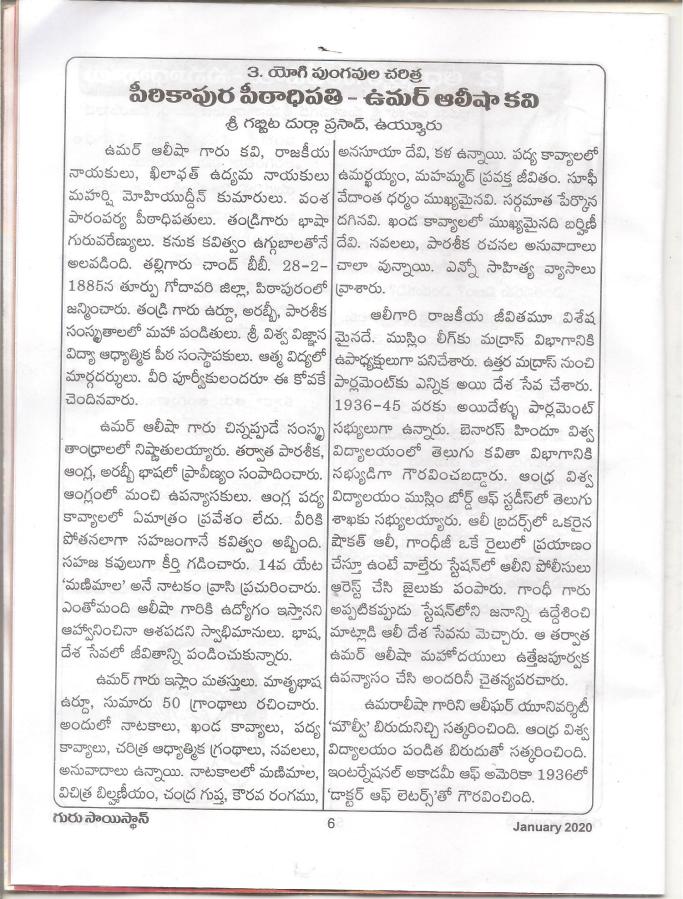 3. యోగి పుంగవుల చరిత్ర
పీఠికాపుర పీఠాధిపతి - ఉమర్ ఆలీషా కవి
శ్రీ గబ్బిట దుర్గా ప్రసాద్, ఉయ్యూరు
ఉమర్ ఆలీషా గారు కవి, రాజకీయ
నాయకులు, ఖిలాఫత్ ఉద్యమ నాయకులు
మహర్షి మోహియుద్దీన్ కుమారులు. వంశ
పారంపర్య పీఠాధిపతులు. తండ్రిగారు భాషా
గురువరేణ్యులు. కనుక కవిత్వం ఉగ్గుబాలతోనే
అలవడింది. తల్లిగారు చాంద్ బీబీ. 28-2-
1885న తూర్పు గోదావరి జిల్లా, పిఠాపురంలో
జన్మించారు. తండ్రి గారు ఉర్దూ, అరబ్బీ, పారశీక
సంస్కృతాలలో మహా పండితులు. శ్రీ విశ్వ విజ్ఞాన
విద్యా ఆధ్యాత్మిక పీఠ సంస్థాపకులు. ఆత్మ విద్యలో
మార్గదర్శులు. వీరి పూర్వీకులందరూ ఈ కోవకే
చెందినవారు.
ఉమర్ ఆలీషా గారు చిన్నప్పుడే సంస్కృ
తాంధ్రాలలో నిష్ణాతులయ్యారు. తర్వాత పారశీక,
ఆంగ్ల, అరబ్బీ భాషలో ప్రావీణ్యం సంపాదించారు.
ఆంగ్లంలో మంచి ఉపన్యాసకులు. ఆంగ్ల పద్య
కావ్యాలలో ఏమాత్రం ప్రవేశం లేదు. వీరికి
పోతనలాగా సహజంగానే కవిత్వం అబ్బింది.
సహజ కవులుగా కీర్తి గడించారు. 14వ యేట
'మణిమాల' అనే నాటకం వ్రాసి ప్రచురించారు.
ఎంతోమంది ఆలీషా గారికి ఉద్యోగం ఇస్తానని
ఆహ్వానించినా ఆశపడని స్వాభిమానులు. భాష,
దేశ సేవలో జీవితాన్ని పండించుకున్నారు.
ఉమర్ గారు ఇస్లాం మతస్తులు. మాతృభాష
ఉర్దూ, సుమారు 50 గ్రాంథాలు రచించారు.
అందులో నాటకాలు, ఖండ కావ్యాలు, పద్య
కావ్యాలు, చరిత్ర ఆధ్యాత్మిక గ్రంథాలు, నవలలు,
అనువాదాలు ఉన్నాయి. నాటకాలలో మణిమాల,
విచిత్ర బిల్హణీయం, చంద్ర గుప్త, కౌరవ రంగము,
అనసూయా దేవి, కళ ఉన్నాయి. పద్య కావ్యాలలో
ఉమర్ఖయ్యం, మహమ్మద్ ప్రవక్త జీవితం. సూఫీ
వేదాంత ధర్మం ముఖ్యమైనవి. సర్గమాత పేర్కొన
దగినవి. ఖండ కావ్యాలలో ముఖ్యమైనది బర్హిణీ
దేవి. నవలలు, పారశీక రచనల అనువాదాలు
చాలా వున్నాయి. ఎన్నో సాహిత్య వ్యాసాలు
వ్రాశారు.
ఆలీగారి రాజకీయ జీవితమూ విశేష
మైనదే. ముస్లిం లీగ్‌కు మద్రాస్ విభాగానికి
ఉపాధ్యక్షులుగా పనిచేశారు. ఉత్తర మద్రాస్ నుంచి
పార్లమెంట్‌కు ఎన్నిక అయి దేశ సేవ చేశారు.
1936-45 వరకు అయిదేళ్ళు పార్లమెంట్
సభ్యులుగా ఉన్నారు. బెనారస్ హిందూ విశ్వ
విద్యాలయంలో తెలుగు కవితా విభాగానికి
సభ్యుడిగా గౌరవించబడ్డారు. ఆంధ్ర విశ్వ
విద్యాలయం ముస్లిం బోర్డ్ ఆఫ్ స్టడీస్‌లో తెలుగు
శాఖకు సభ్యులయ్యారు. ఆలీ బ్రదర్స్‌లో ఒకరైన
షౌకత్ ఆలీ, గాంధీజీ ఒకే రైలులో ప్రయాణం
చేస్తూ ఉంటే వాల్తేరు స్టేషన్‌లో ఆలీని పోలీసులు
ఆరెస్ట్ చేసి జైలుకు పంపారు. గాంధీ గారు
అప్పటికప్పుడు స్టేషన్‌లోని జనాన్ని ఉద్దేశించి
మాట్లాడి ఆలీ దేశ సేవను మెచ్చారు. ఆ తర్వాత
ఉమర్ ఆలీషా మహోదయులు ఉత్తేజపూర్వక
ఉపన్యాసం చేసి అందరినీ చైతన్యపరచారు.
ఉమరాలీషా గారిని ఆలీఘర్ యూనివర్శిటీ
'మౌల్వీ' బిరుదునిచ్చి సత్కరించింది. ఆంధ్ర విశ్వ
విద్యాలయం పండిత బిరుదుతో సత్కరించింది.
ఇంటర్నేషనల్ అకాడమీ ఆఫ్ అమెరికా 1936లో
'డాక్టర్ ఆఫ్ లెటర్స్'తో గౌరవించింది.
గురు సాయిస్థాన్
6
January 2020